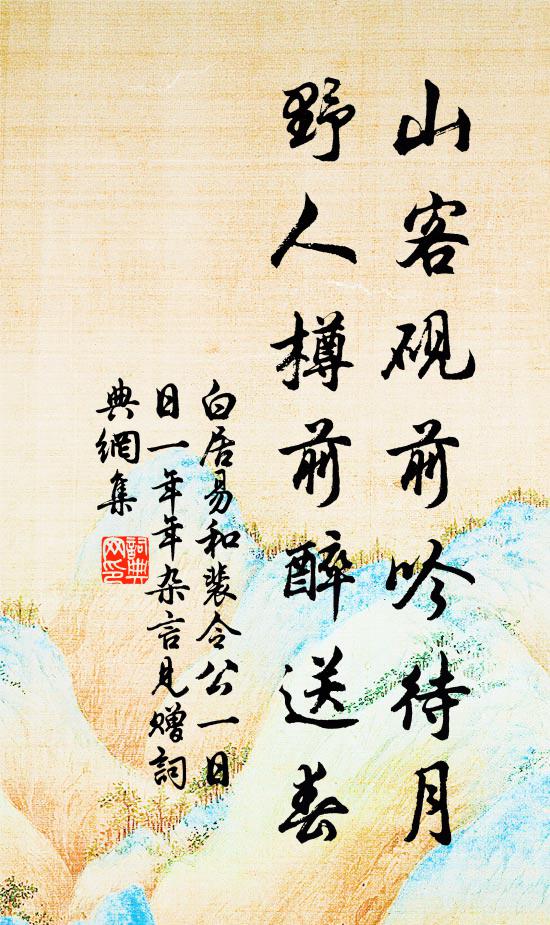 山客砚前吟待月
野人樽前醉送春
白居易和裴令公一日
日一年年杂言见赠词
典網集
詞典網印